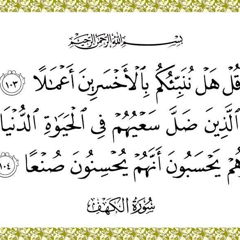 بِسْمِ اللَّهِ الرَّحْمَٰنِ الرَّحِيمِ
قُلْ هَلْ نُنَبِّئُكُم بِالْأَخْسَرِينَ أَعْمَالًا ١٠٣
الَّذِينَ ضَلَّ سَعْيُهُمْ فِي الْحَيَاةِ الدُّنْيَا
وَهُمْ يَحْسَبُونَ أَنَّهُمْ يُحْسِنُونَ صُنْعًا ١٠٤
سُورَةُ الْكَهْفِ